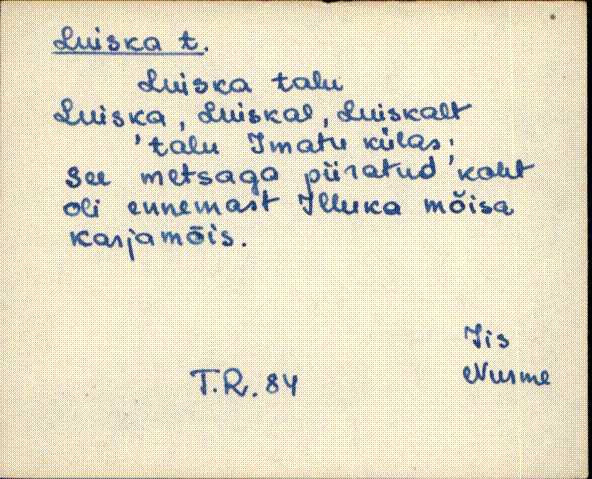 Luiska t.
Luiska talu
Luiska, Luiskal, Luiskalt
'talu Imatu külas.
See metsaga piiratud 'koht
oli ennemast Illuka mõisa
karjamõis.
Iis
Nurme
T.R. 84